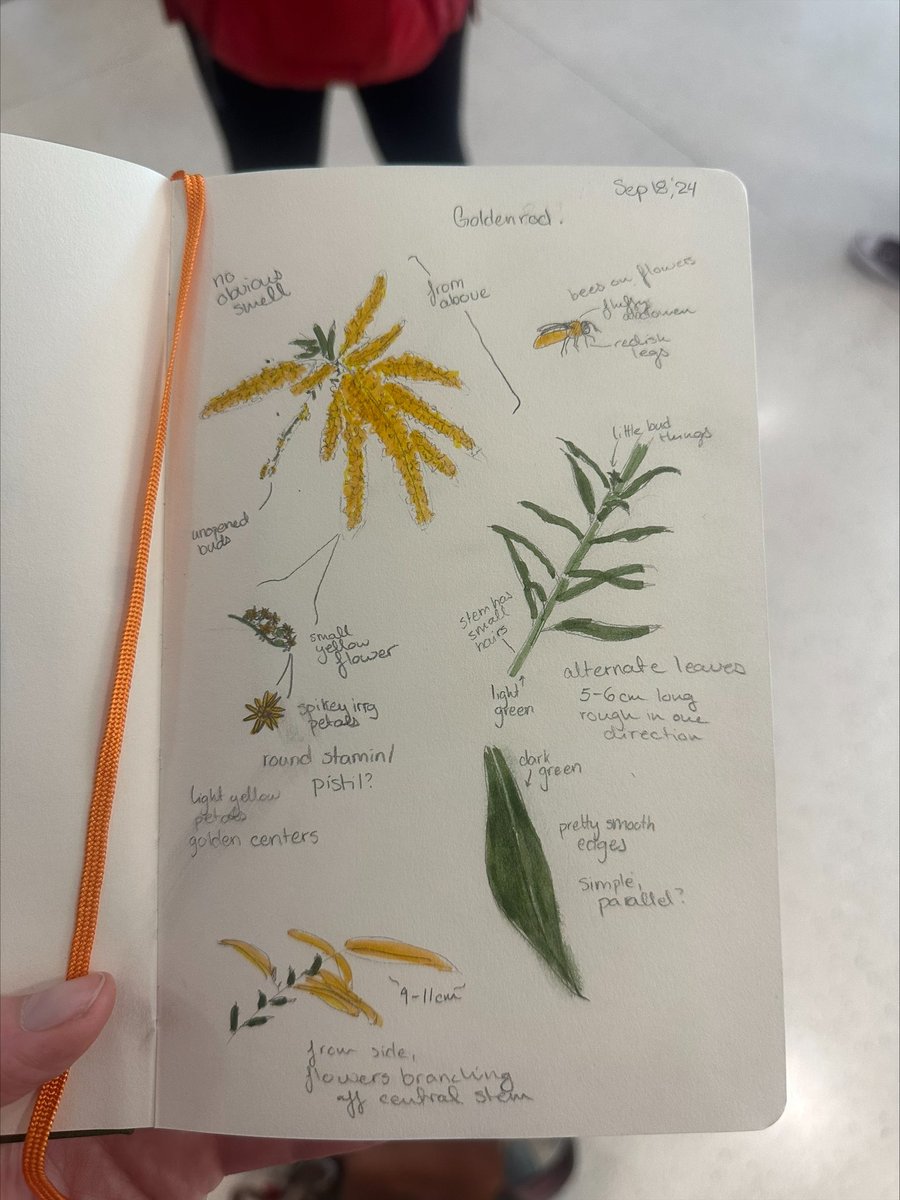 Sep 18, '24
Goldenrod.
no
obvious
smell
from
above
bees on flowers
fluffy
abdomen
redish
legs
little bud
things
unopened
buds
small
yellow
flower
spikey irrg
petals
round stamin/
pistil?
light yellow
petals
golden centers
stem has
small
hairs
light
green
alternate leaves
5-6cm long
rough in one
direction
dark
green
pretty smooth
edges
simple,
parallel?
~9-11cm~
from side,
flowers branching
off central stem